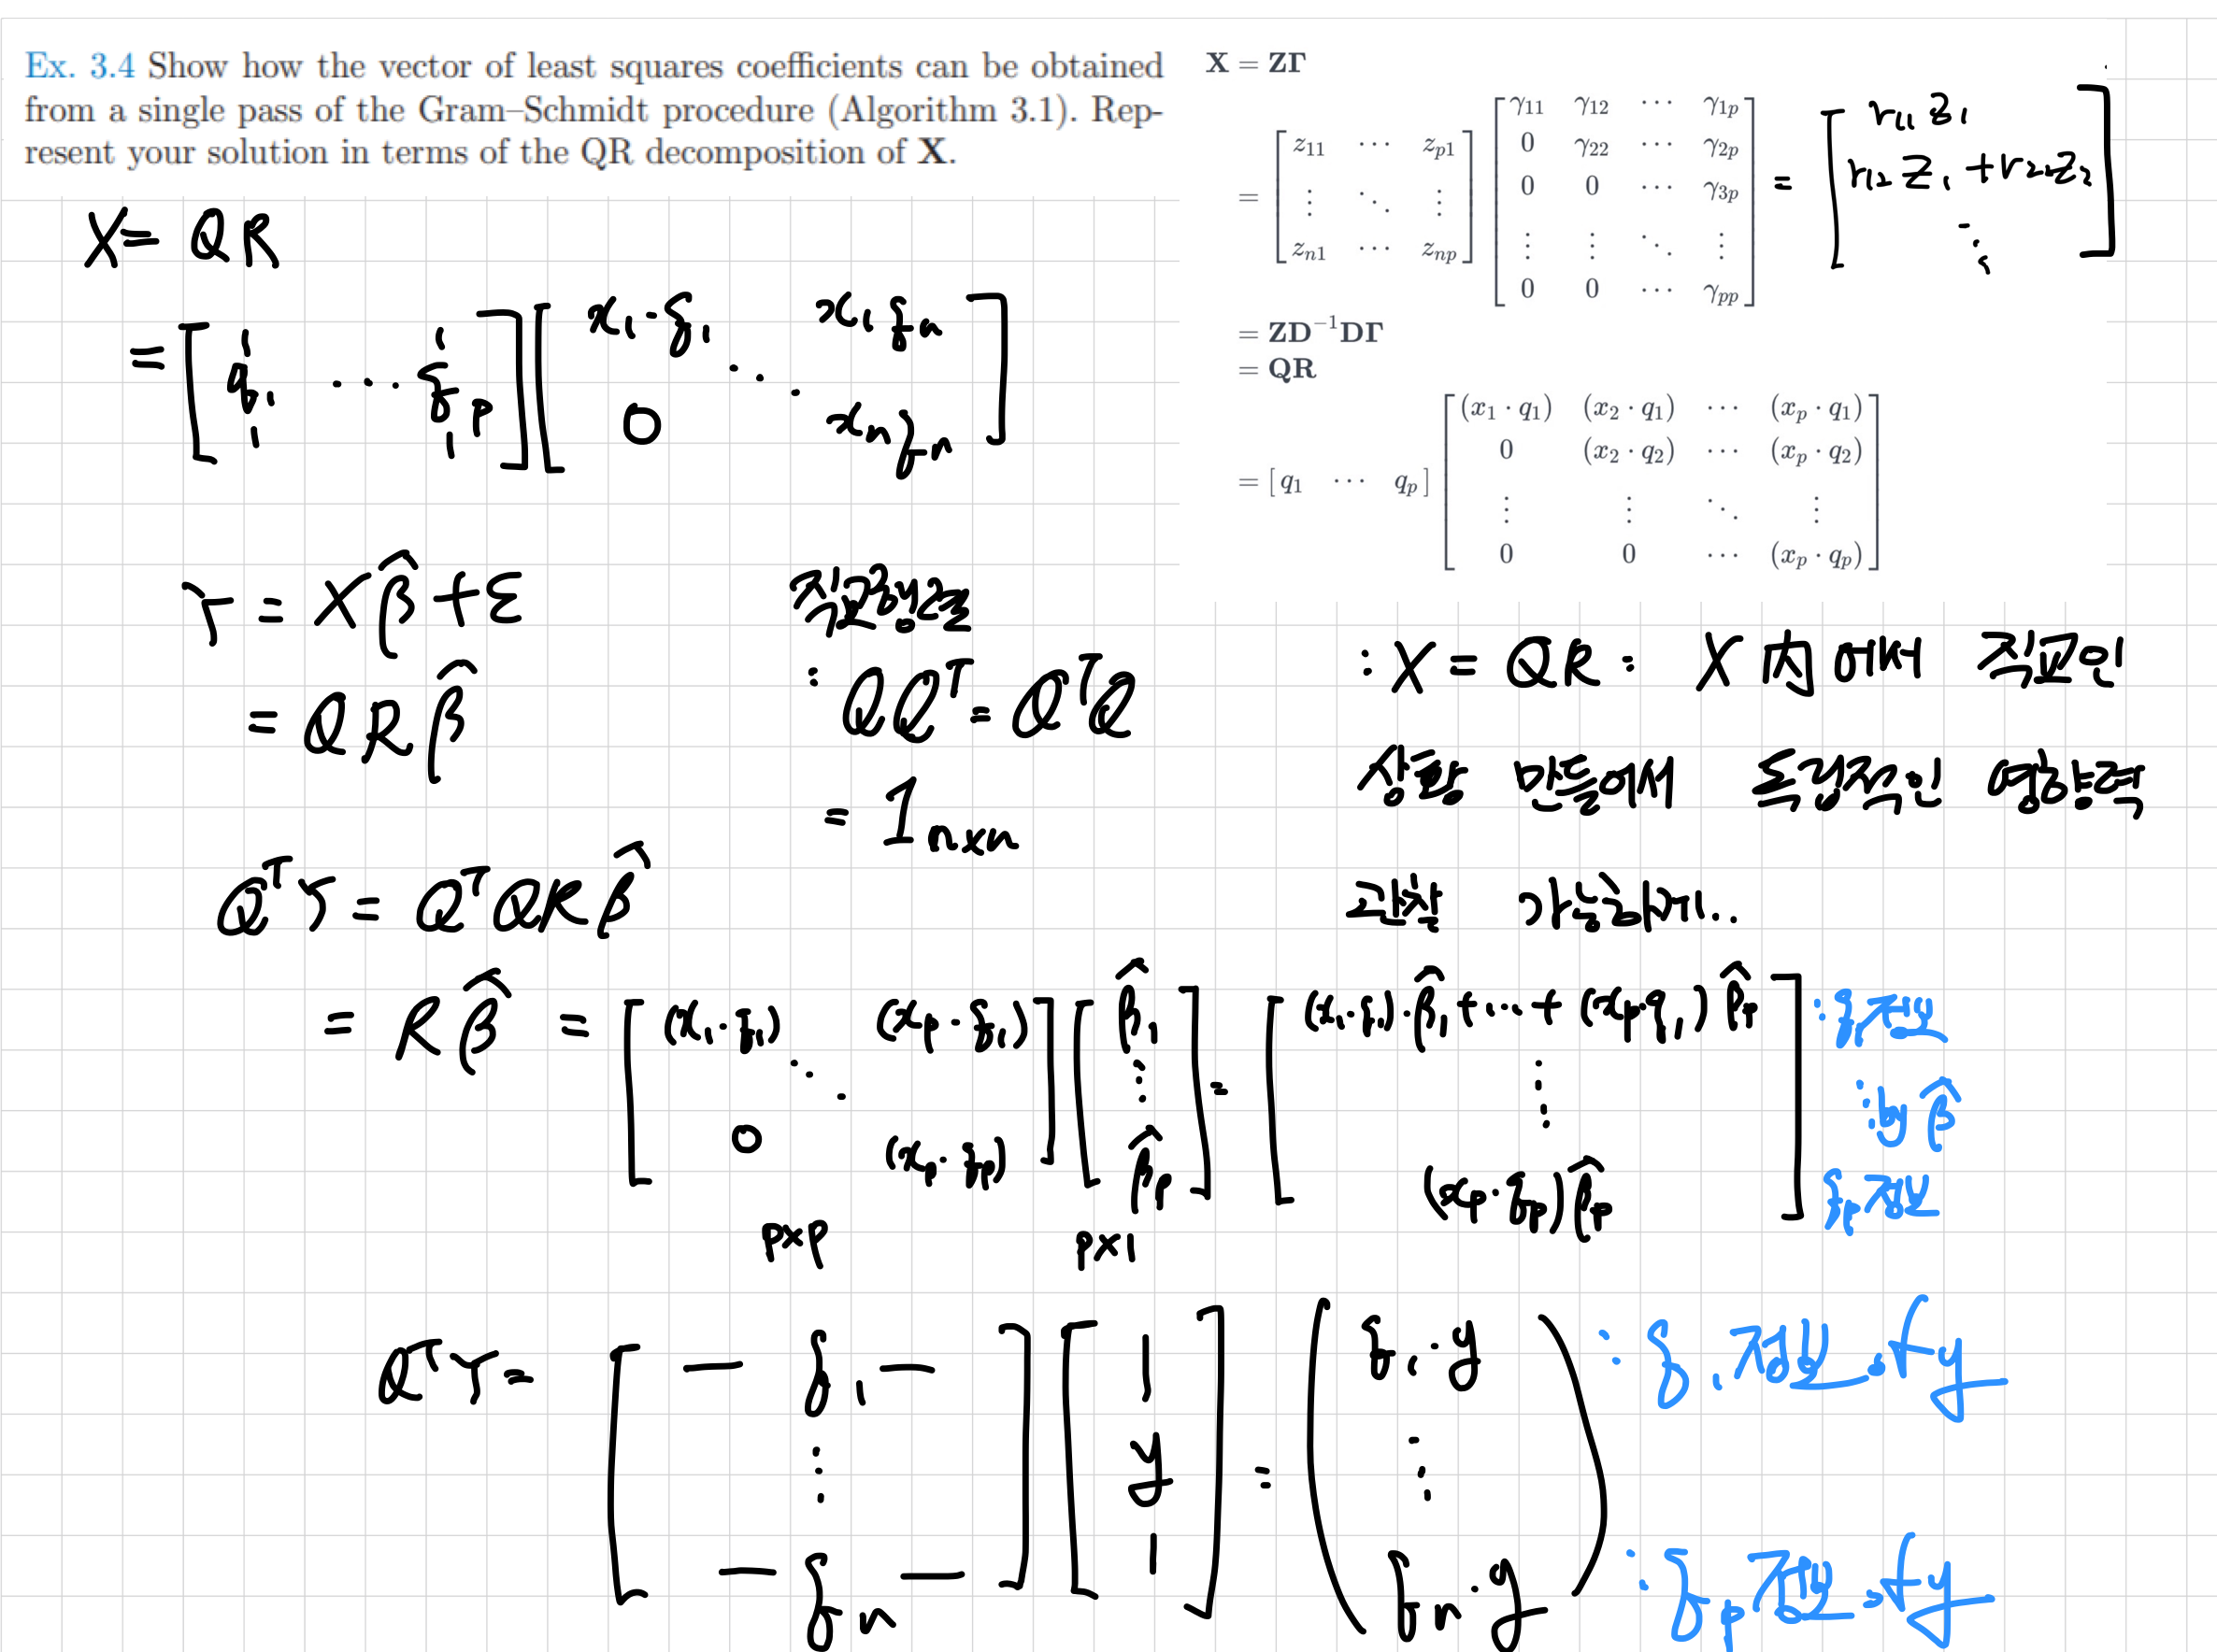 Ex. 3.4 Show how the vector of least squares coefficients can be obtained
from a single pass of the Gram–Schmidt procedure (Algorithm 3.1). Rep-
resent your solution in terms of the QR decomposition of X.
X = ZΓ
= [ z11 ⋯ zp1 ] [ γ11 γ12 ⋯ γ1p ] = [ r11 z1 ]
[ ⋮ ⋱ ⋮ ] [ 0 γ22 ⋯ γ2p ] [ r12 z1 + r22 z2 ]
[ zn1 ⋯ znp ] [ 0 0 ⋯ γ3p ] [ ⋱ ]
[ ⋮ ⋮ ⋱ ⋮ ]
[ 0 0 ⋯ γpp ]
= ZD⁻¹DΓ
= QR
= [ q1 ⋯ qp ] [ (x1 · q1) (x2 · q1) ⋯ (xp · q1) ]
[ 0 (x2 · q2) ⋯ (xp · q2) ]
[ ⋮ ⋮ ⋱ ⋮ ]
[ 0 0 ⋯ (xp · qp) ]
X = QR
= [ q1 ⋯ qp ] [ x1·q1 ⋱ x1qn ]
[ 0 xnqn ]
Y = Xβ̂ + ε
= QRβ̂
직교행렬
: QQᵀ = QᵀQ
= I n×n
: X = QR : X 内에서 직교인
상황 만들어서 독립적인 영향력
관찰 가능하게..
QᵀY = QᵀQRβ̂
= Rβ̂ = [ (x1·q1) ⋱ (xp·q1) ] [ β̂1 ] = [ (x1·q1)·β̂1 + ⋯ + (xp·q1)β̂p ] : q1정보
[ ⋮ ] [ ⋮ ] : by β̂
[ 0 (xp·qp) ] [ β̂p ] [ (xp·qp)β̂p ] qp정보
p×p p×1
QᵀY = [ — q1 — ] [ | ] = ( q1·y ) : q1정보 of y
[ ⋮ ] [ y ] ( ⋮ )
[ — qn — ] [ | ] ( qn·y ) : qp정보 of y